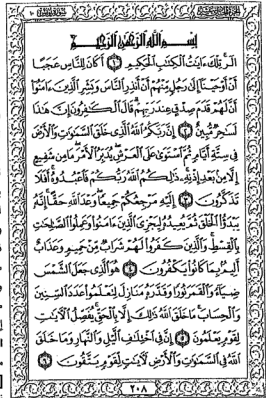 بِسْمِ اللَّهِ الرَّحْمَٰنِ الرَّحِيمِ
الٓر تِلْكَ ءَايَٰتُ ٱلْكِتَٰبِ ٱلْحَكِيمِ ١ أَكَانَ لِلنَّاسِ عَجَبًا
أَنْ أَوْحَيْنَآ إِلَىٰ رَجُلٍ مِّنْهُمْ أَنْ أَنذِرِ ٱلنَّاسَ وَبَشِّرِ ٱلَّذِينَ ءَامَنُوٓا۟
أَنَّ لَهُمْ قَدَمَ صِدْقٍ عِندَ رَبِّهِمْ قَالَ ٱلْكَٰفِرُونَ إِنَّ هَٰذَا
لَسَٰحِرٌ مُّبِينٌ ٢ إِنَّ رَبَّكُمُ ٱللَّهُ ٱلَّذِى خَلَقَ ٱلسَّمَٰوَٰتِ وَٱلْأَرْضَ
فِى سِتَّةِ أَيَّامٍ ثُمَّ ٱسْتَوَىٰ عَلَى ٱلْعَرْشِ يُدَبِّرُ ٱلْأَمْرَ مَا مِن شَفِيعٍ
إِلَّا مِنۢ بَعْدِ إِذْنِهِۦ ذَٰلِكُمُ ٱللَّهُ رَبُّكُمْ فَٱعْبُدُوهُ أَفَلَا
تَذَكَّرُونَ ٣ إِلَيْهِ مَرْجِعُكُمْ جَمِيعًا وَعْدَ ٱللَّهِ حَقًّا إِنَّهُۥ
يَبْدَؤُا۟ ٱلْخَلْقَ ثُمَّ يُعِيدُهُۥ لِيَجْزِىَ ٱلَّذِينَ ءَامَنُوا۟ وَعَمِلُوا۟ ٱلصَّٰلِحَٰتِ
بِٱلْقِسْطِ وَٱلَّذِينَ كَفَرُوا۟ لَهُمْ شَرَابٌ مِّنْ حَمِيمٍ وَعَذَابٌ
أَلِيمٌۢ بِمَا كَانُوا۟ يَكْفُرُونَ ٤ هُوَ ٱلَّذِى جَعَلَ ٱلشَّمْسَ
ضِيَآءً وَٱلْقَمَرَ نُورًا وَقَدَّرَهُۥ مَنَازِلَ لِتَعْلَمُوا۟ عَدَدَ ٱلسِّنِينَ
وَٱلْحِسَابَ مَا خَلَقَ ٱللَّهُ ذَٰلِكَ إِلَّا بِٱلْحَقِّ يُفَصِّلُ ٱلْءَايَٰتِ
لِقَوْمٍ يَعْلَمُونَ ٥ إِنَّ فِى ٱخْتِلَٰفِ ٱلَّيْلِ وَٱلنَّهَارِ وَمَا خَلَقَ
ٱللَّهُ فِى ٱلسَّمَٰوَٰتِ وَٱلْأَرْضِ لَءَايَٰتٍ لِّقَوْمٍ يَتَّقُونَ ٦
٢٠٨